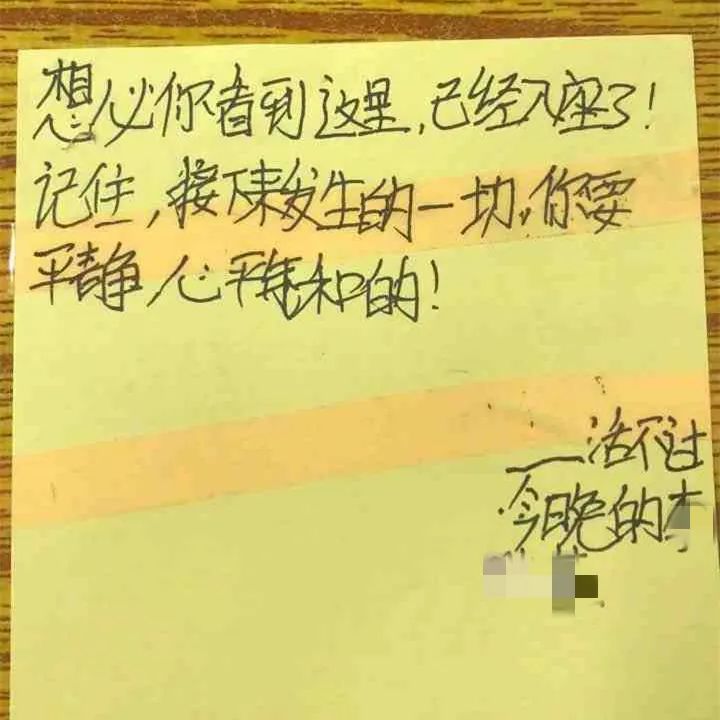 想必你看到这里,已经入座了!
记住,接下来发生的一切,你要
平静,心平气和的!
——活不过
今晚的李